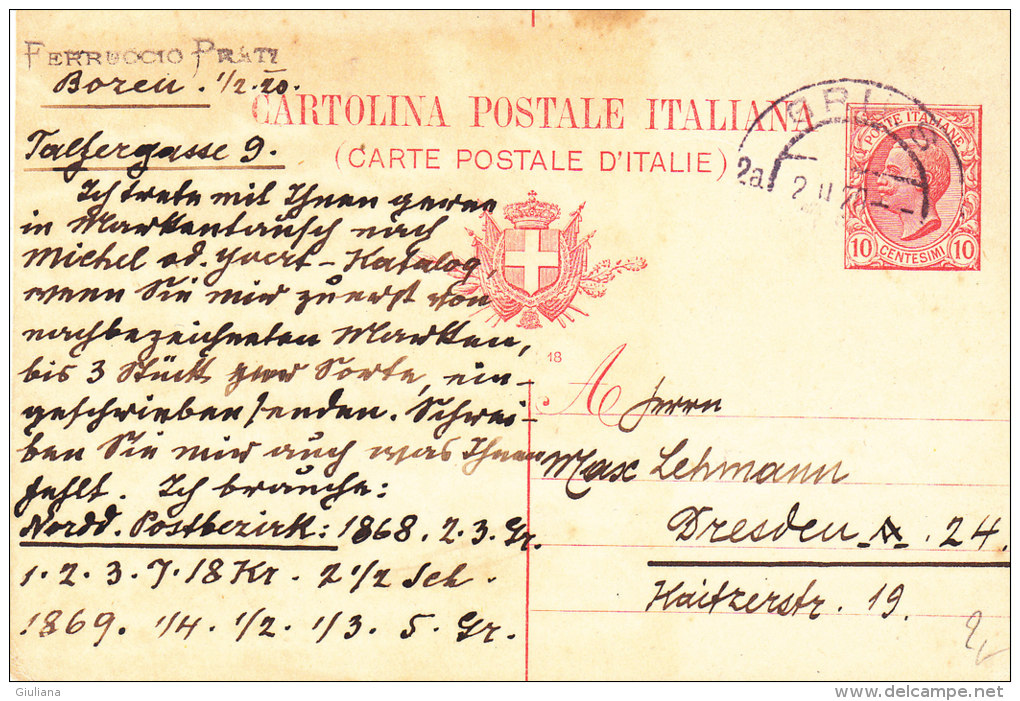 FERRUCCIO PRATI
Bozen. 1/2.20.
Talfergasse 9.
Ich trete mit Ihnen gerne
in Markentausch nach
Michel od. Yvert-Katalog,
wenn Sie mir zuerst von
nachbezeichneten Marken,
bis 3 Stück pro Sorte, ein-
geschrieben senden. Schrei-
ben Sie mir auch was Ihnen
fehlt. Ich brauche:
Nordd. Postbezirk: 1868. 2. 3. Gr.
1. 2. 3. 7. 18 Kr. 2 1/2 Sch.
1869. 1/4. 1/2. 1/3. 5. Gr.
CARTOLINA POSTALE ITALIANA
(CARTE POSTALE D'ITALIE)
2a
2 II
POSTE ITALIANE
10 CENTESIMI 10
18
A Herrn
Max Lehmann
Dresden A. 24.
Kaitzerstr. 19.
Giuliana
delcampe.net